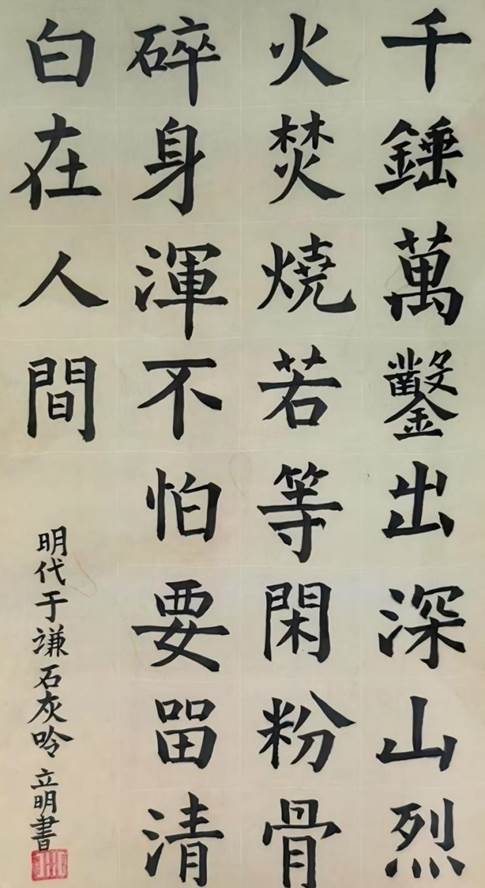 千錘萬鑿出深山烈
火焚燒若等閑粉骨
碎身渾不怕要畱清
白在人間
明代于谦石灰吟立明書